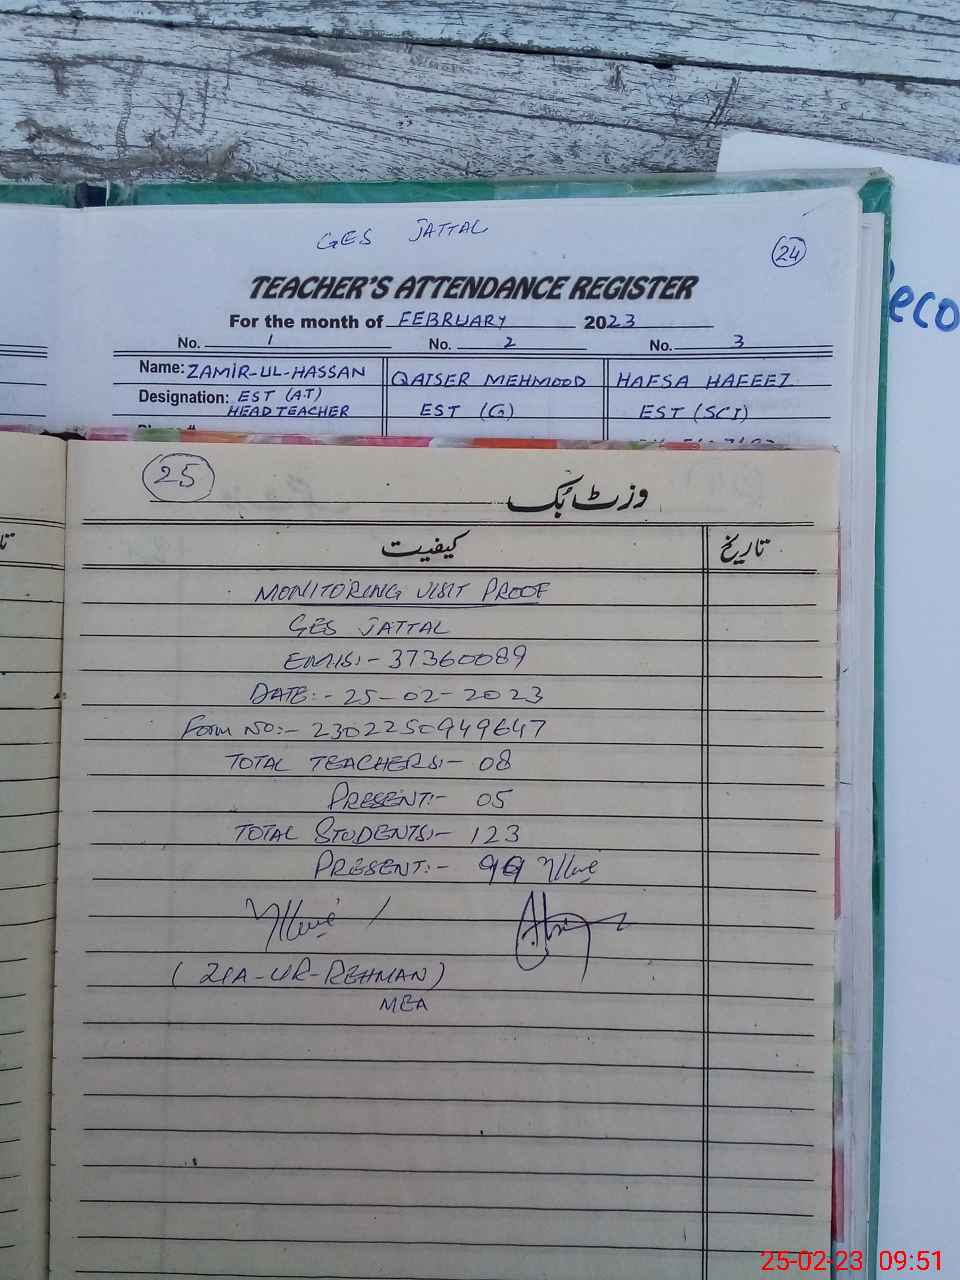 GES JATTAL
24
TEACHER'S ATTENDANCE REGISTER
For the month of FEBRUARY 2023
No. 1 No. 2 No. 3
Name: ZAMIR-UL-HASSAN QAISER MEHMOOD HAFSA HAFEEZ
Designation: EST (A.T) EST (G) EST (SCI)
HEAD TEACHER
eco
25
وزٹ بک
کیفیت تاریخ
MONITORING VISIT PROOF
GES JATTAL
EMIS:- 37360089
DATE:- 25-02-2023
Form No:- 2302250949647
TOTAL TEACHERS:- 08
PRESENT:- 05
TOTAL STUDENTS:- 123
PRESENT:- 99
(ZIA-UR-REHMAN)
MEA
25-02-23 09:51